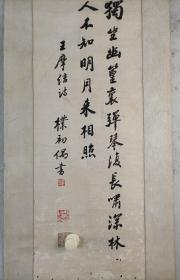 獨坐幽篁裏彈琴復長嘯深林
人不知明月来相照
王摩诘詩
樸初偶書